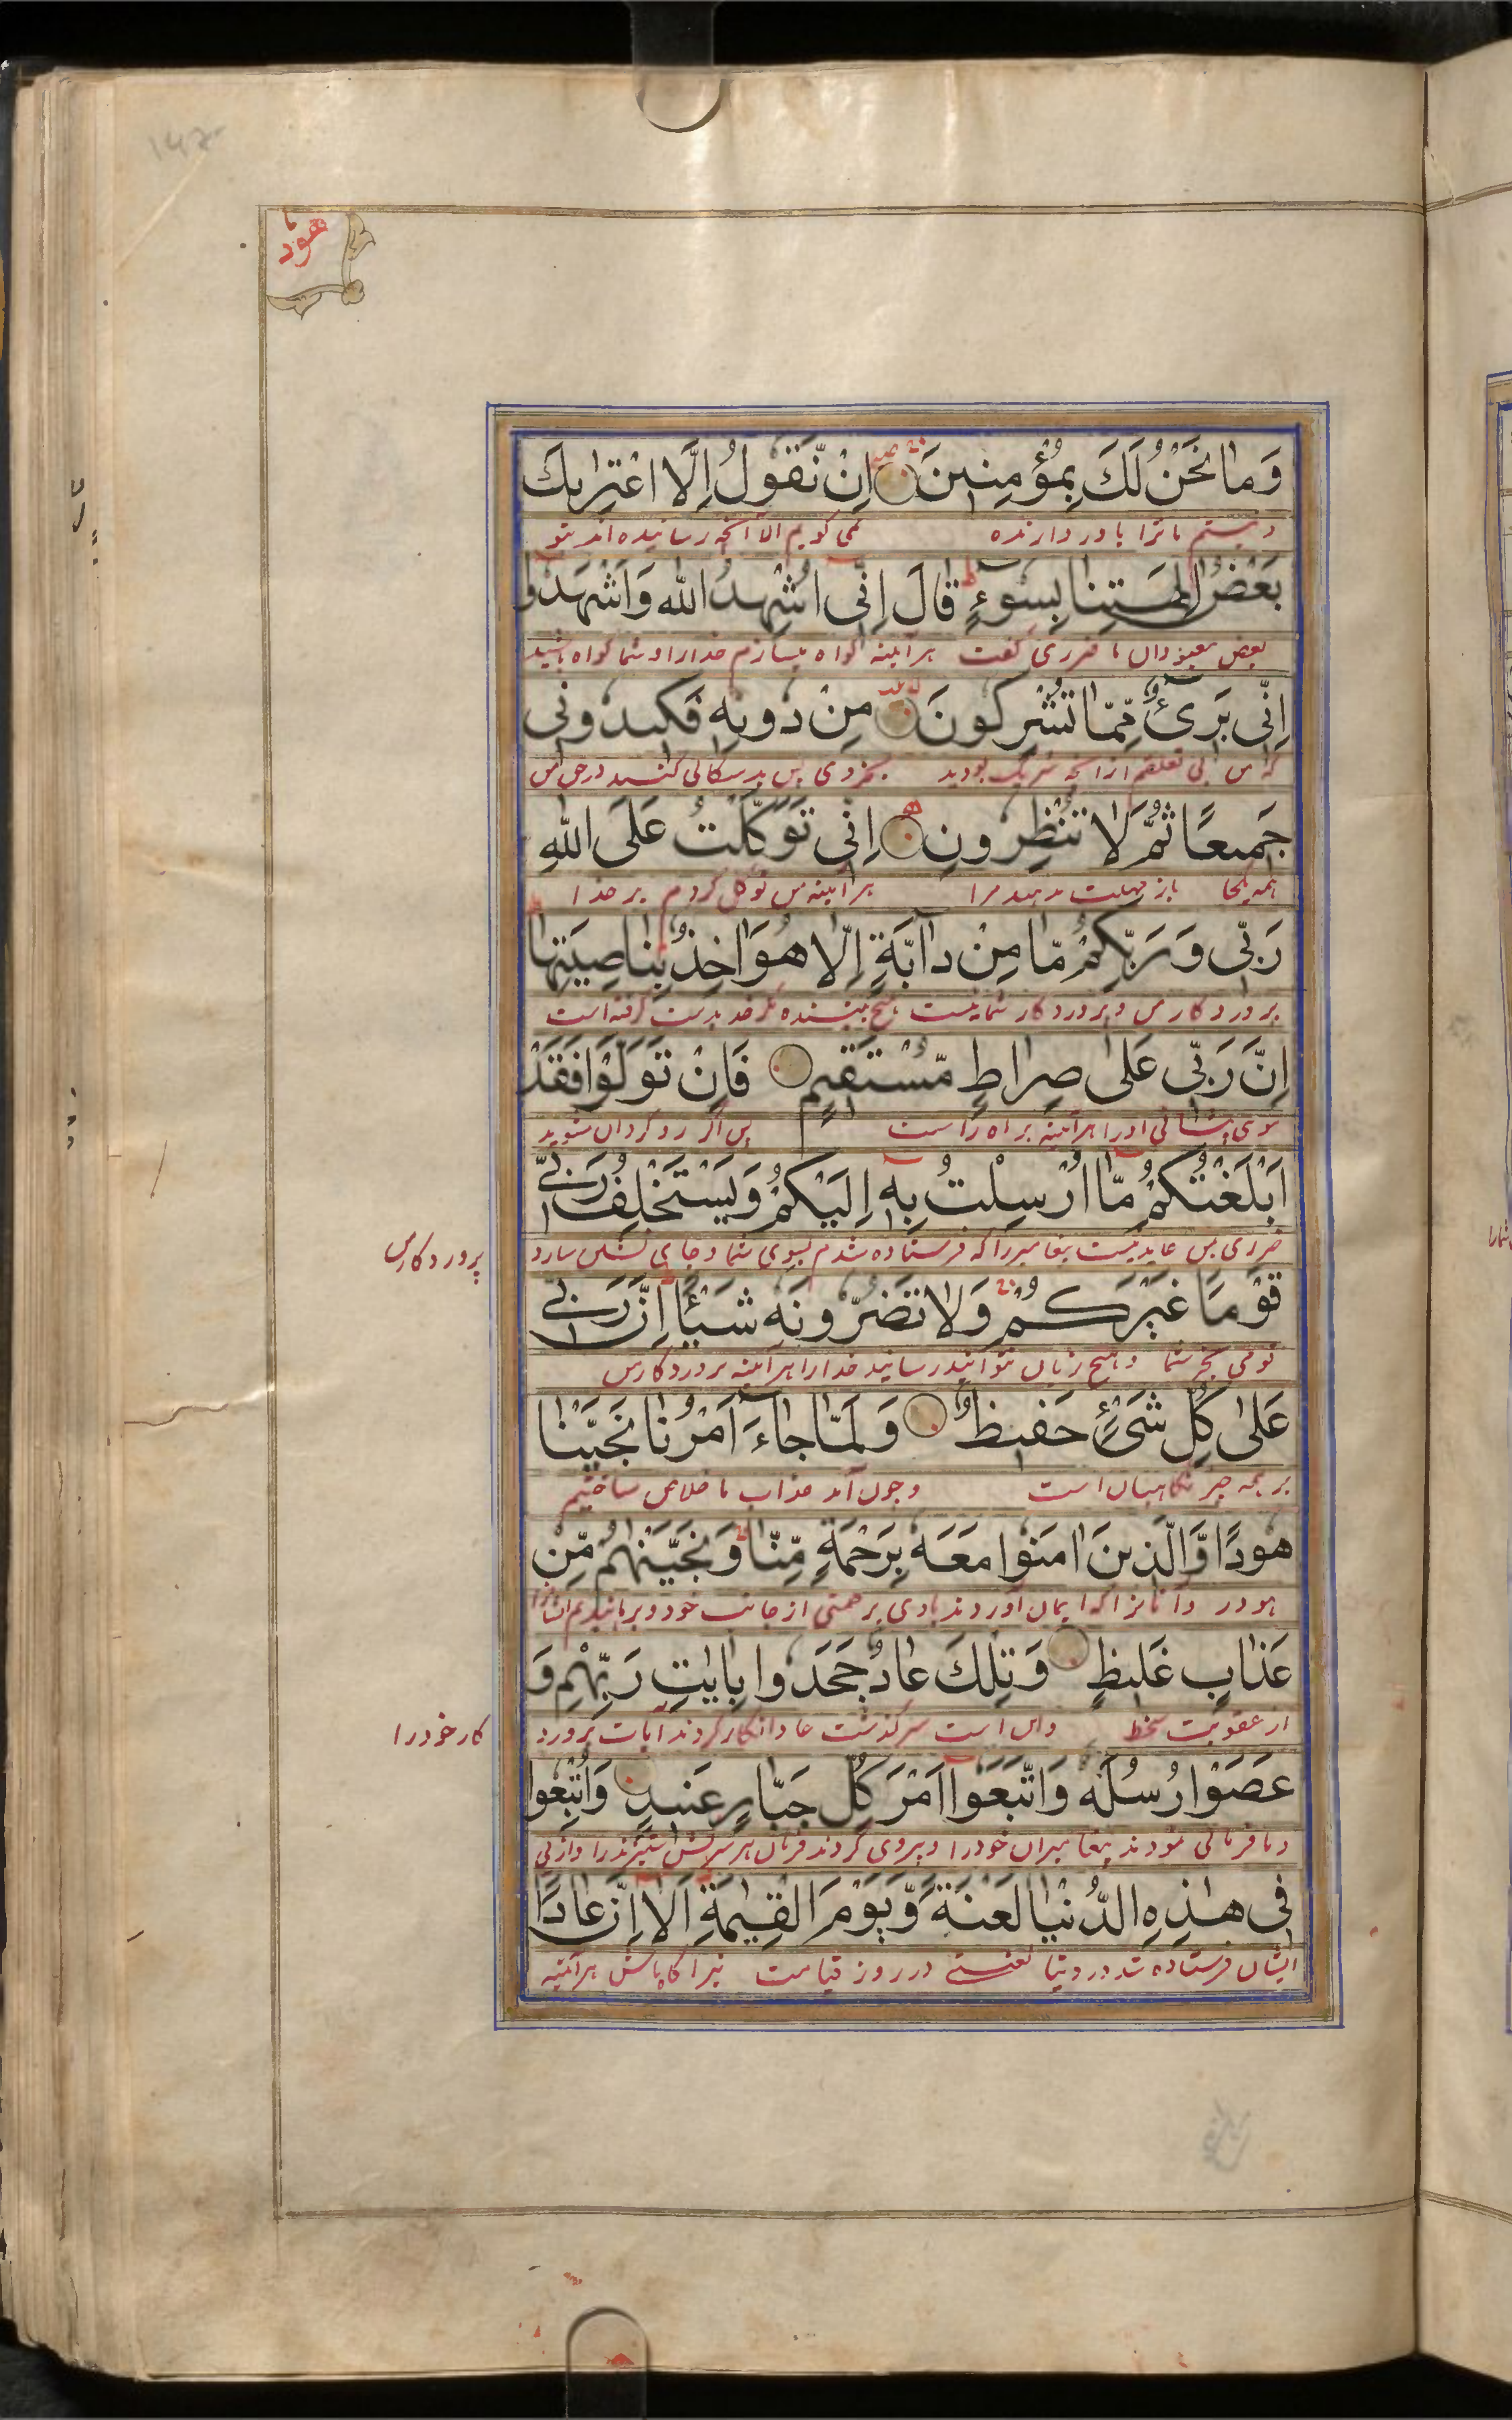 هود
وَمَا نَحْنُ لَكَ بِمُؤْمِنِينَ اِنْ نَّقُولُ اِلَّا اعْتَرٰىكَ
و نیستم ما ترا باور دارنده نمی کویم الا آنچه رسانیده اند بتو
بَعْضُ اٰلِهَتِنَا بِسُوْءٍ قَالَ اِنِّى اُشْهِدُ اللّٰهَ وَاشْهَدُوا
بعض معبودان ما ضرری گفت هر آینه گواه میسازم خدارا و شما گواه باشید
اِنِّى بَرِىْءٌ مِّمَّا تُشْرِكُونَ مِنْ دُونِهٖ فَكِيدُونِى
که من بی تعلقم از انچه شریک بجز وی پس بدسکالی کنید در حق من
جَمِيعًا ثُمَّ لَا تُنْظِرُونِ اِنِّى تَوَكَّلْتُ عَلَى اللّٰهِ
همه یکجا باز مهلت مدهید مرا هر آینه من توکل کردم بر خدا
رَبِّى وَرَبِّكُمْ مَّا مِنْ دَآبَّةٍ اِلَّا هُوَ اٰخِذٌ بِنَاصِيَتِهَا
پروردکار من و پروردکار شما نیست هیچ جنبنده مکر خدا بدست کرفته است
اِنَّ رَبِّى عَلٰى صِرَاطٍ مُّسْتَقِيمٍ فَاِنْ تَوَلَّوْا فَقَدْ
موی پیشانی او را هر آینه بر راه راست پس اگر رو گردان شوید
اَبْلَغْتُكُمْ مَّا اُرْسِلْتُ بِهٖ اِلَيْكُمْ وَيَسْتَخْلِفُ رَبِّى
ضرری بمن عاید نیست پیغامبر را که فرستاده شدم بسوی شما و جای نشین سازد
پروردکار من
قَوْمًا غَيْرَكُمْ وَلَا تَضُرُّونَهٗ شَيْـًٔا اِنَّ رَبِّى
قومی بجز شما و هیچ زیان نتوانید رسانید خدارا هر آینه پروردکار من
عَلٰى كُلِّ شَىْءٍ حَفِيظٌ وَلَمَّا جَاءَ اَمْرُنَا نَجَّيْنَا
بر همه چیز نکاهبان است و چون آمد عذاب ما خلاص ساختیم
هُودًا وَّالَّذِينَ اٰمَنُوا مَعَهٗ بِرَحْمَةٍ مِّنَّا وَنَجَّيْنٰهُمْ مِّنْ
هود را و آنانرا که ایمان آوردند با وی برحمتی از جانب خود و برهانیدیم ایشانرا
عَذَابٍ غَلِيظٍ وَتِلْكَ عَادٌ جَحَدُوا بِاٰيٰتِ رَبِّهِمْ وَ
از عقوبت سخط و این است سرکذشت عاد انکار کردند آیات پرورد
کار خود را
عَصَوْا رُسُلَهٗ وَاتَّبَعُوا اَمْرَ كُلِّ جَبَّارٍ عَنِيدٍ وَاُتْبِعُوا
و نافرمانی نمودند پیغامبران خود را و پیروی کردند فرمان هر سرکش ستیزنده را و از پی
فِى هٰذِهِ الدُّنْيَا لَعْنَةً وَّيَوْمَ الْقِيٰمَةِ اَلَا اِنَّ عَادًا
ایشان فرستاده شد در دنیا لعنتی در روز قیامت نیز آکاه باش هر آینه